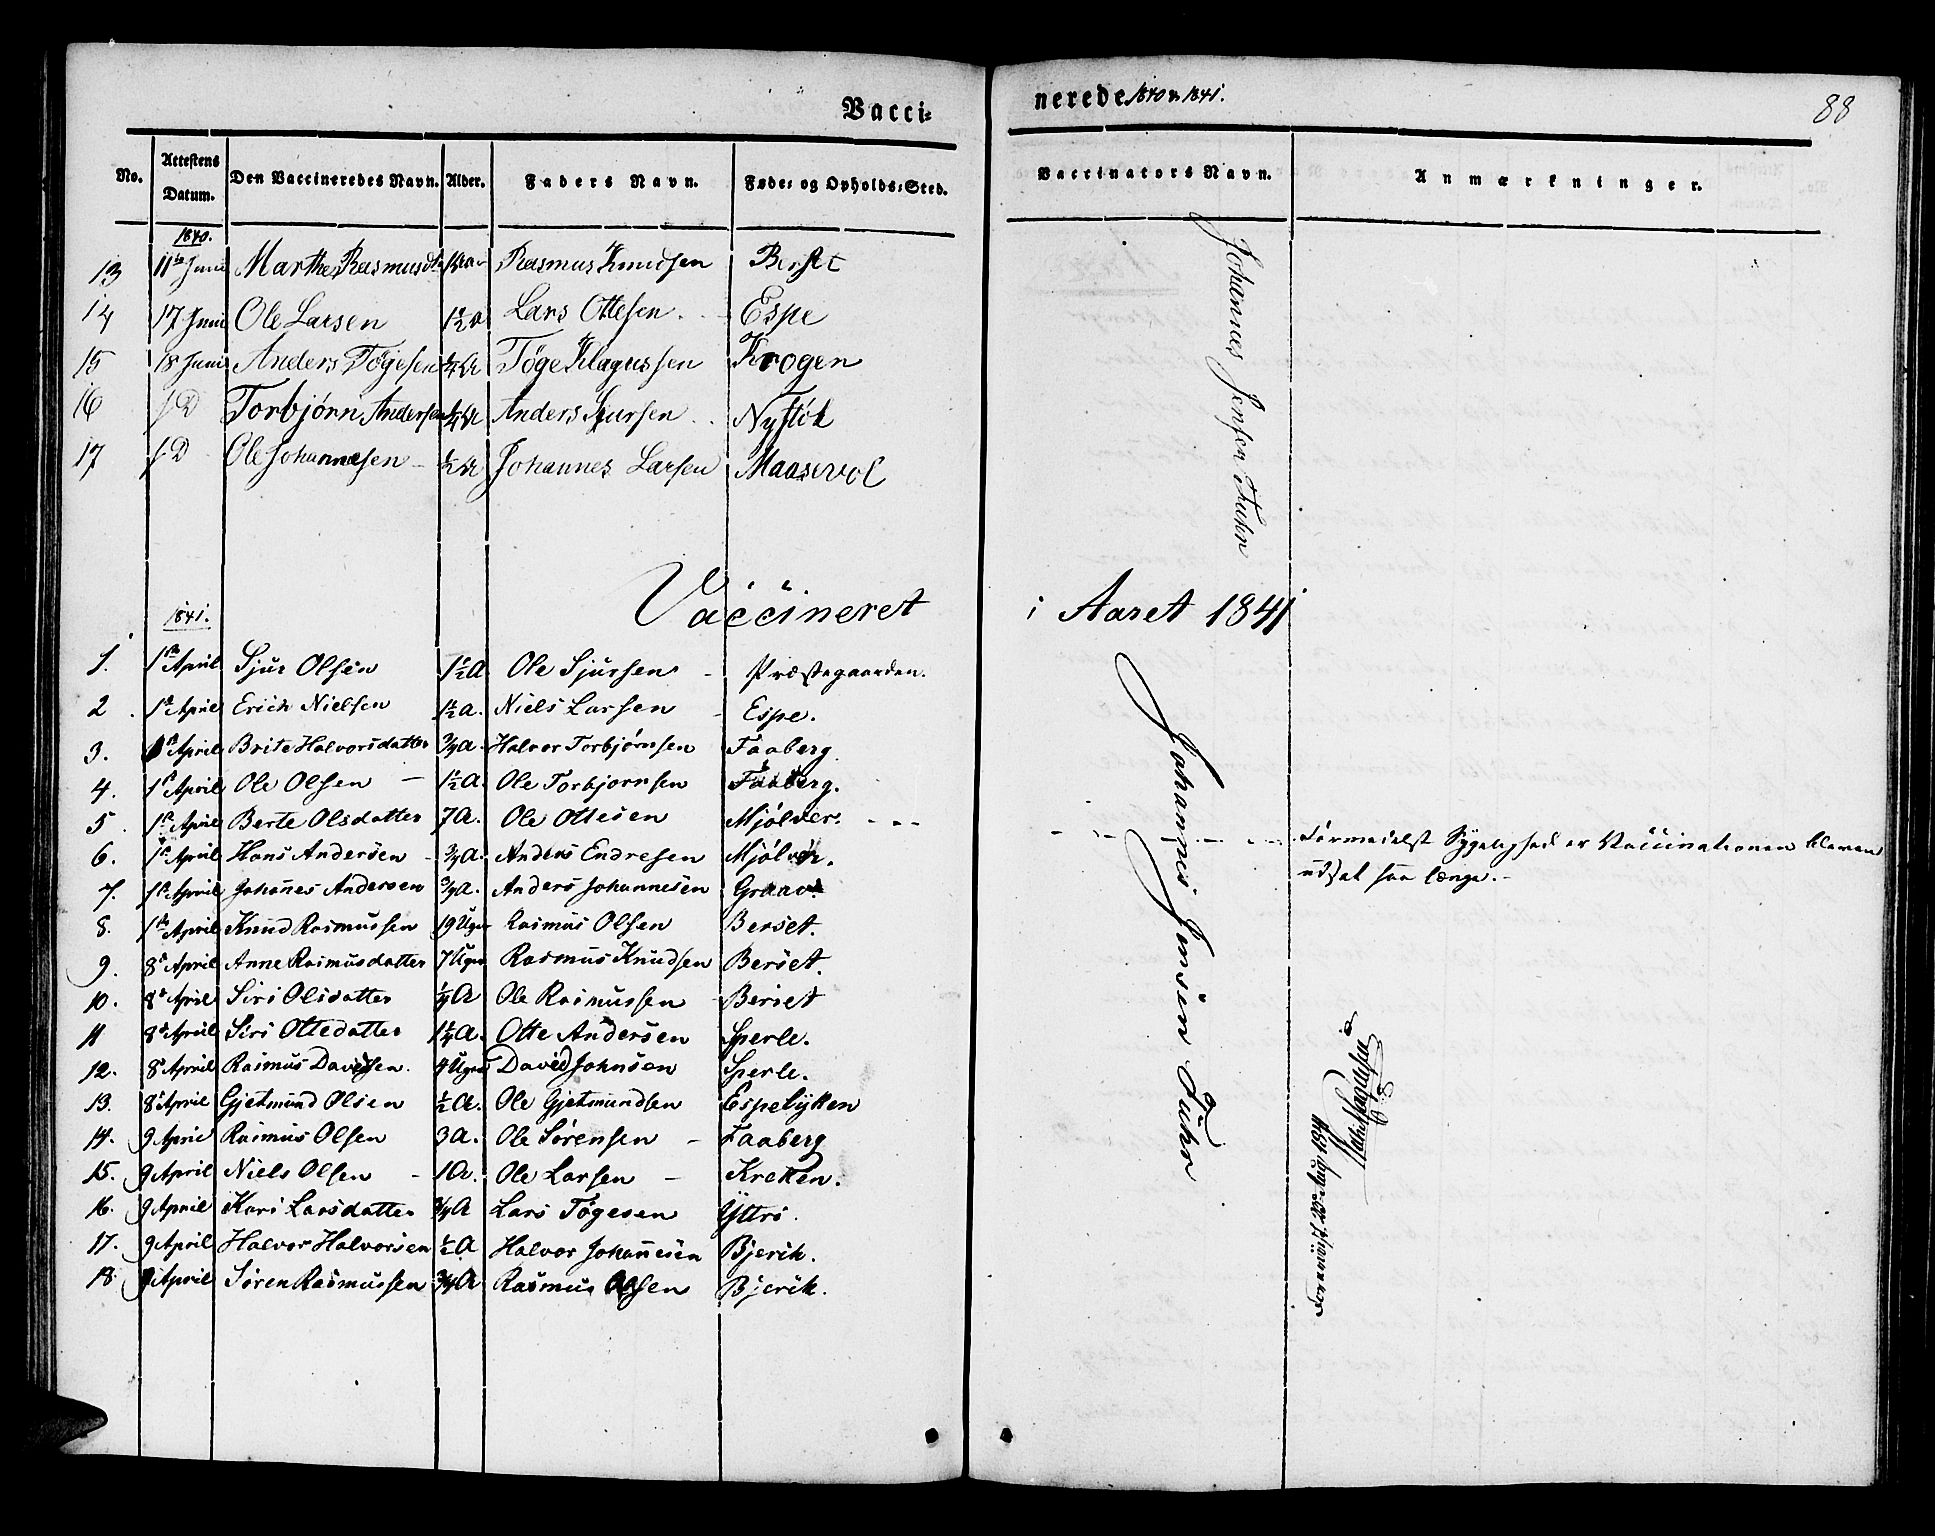 Vacci-
nerede 1840 & 1841.
88
No. Attestens Datum. Den Vaccineredes Navn. Alder. Faders Navn. Føde- og Opholds-Sted. Vaccinators Navn. Anmærkninger.
1840.
13 11te Juni Marthe Rasmusdtr Rasmus Knudsen Berset
14 17 Juni Ole Larsen 1½ A Lars Ottesen. Espe
15 18 Juni Anders Tøgesen ¼ A Tøge Klagussen Krogen
16 s. D Torbjørn Andersen ¼ A Anders Sjursen Nystøl
17 s. D Ole Johannesen ½ A Johannes Larsen Maasevol
Johannes Jensen Fuhr
Vaccineret i Aaret 1841
1841.
1. 1te April Sjur Olsen 1½ A Ole Sjursen Præstegaarden.
2. 1te April Erich Nielsen 1½ A. Niels Larsen Espe.
3. 1te April Brite Halvorsdatter ¾ A. Halvor Torbjørnsen Faaberg
4. 1te April Ole Olsen 1½ A. Ole Torbjornsen Faaberg.
5. 1te April Berte Olsdatter 7 A. Ole Ottesen Mjølver. Formedelst Sygelighed er Vaccinationen bleven
udsat saa længe.
6. 1te April Hans Andersen ¾ A. Anders Endresen Mjølver.
7. 1te April Johannes Andersen ¾ A. Anders Johannesen Graav.
8. 1te April Knud Rasmussen 19 Uger Rasmus Olsen Berset.
9. 8de April Anne Rasmusdatter 7 Uger Rasmus Knudsen Berset.
10. 8de April Siri Olsdatter ¼ A Ole Rasmussen Berset
11 8de April Siri Ottedatter 1¼ A. Otte Andersen Sperle.
12. 8de April Rasmus Davidsen. 4 Uger David Johnsen Sperle.
13. 8de April Gjetmund Olsen ½ A. Ole Gjetmundsen Espelykken
14. 9 April Rasmus Olsen 3 A. Ole Sørensen Faaberg
15. 9 April Niels Olsen 1 A. Ole Larsen Kreken.
16. 9 April Kari Larsdatter ¾ A Lars Tøgesen Yttri.
17. 9 April Halvor Halvorsen ½ A Halvor Johannesen Bjerik.
18. 9 April Søren Rasmussen ¾ A Rasmus Olsen Bjerik.
Johannes Jensen Fuhr
Foreviist, 25 Aug. 1841